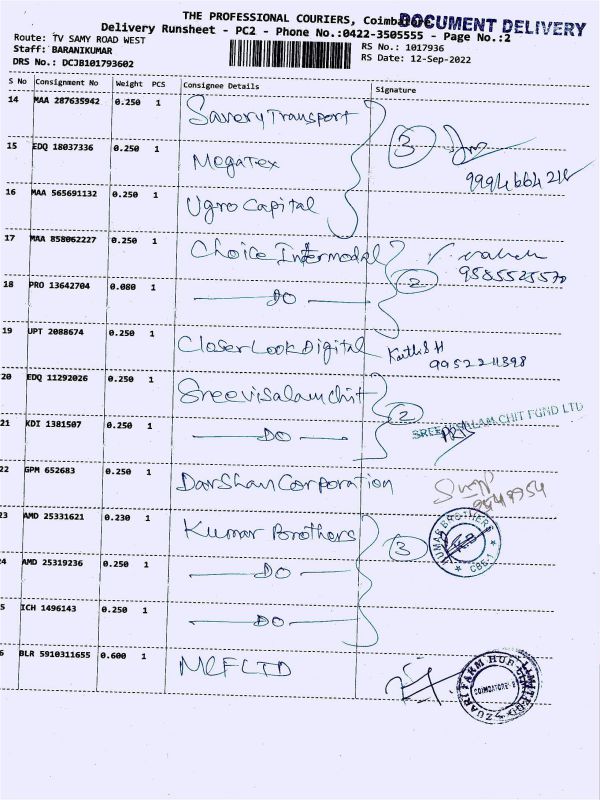 THE PROFESSIONAL COURIERS, Coimbatore
DOCUMENT DELIVERY
Delivery Runsheet - PC2 - Phone No.:0422-3505555 - Page No.:2
Route: TV SAMY ROAD WEST
RS No.: 1017936
Staff: BARANIKUMAR
RS Date: 12-Sep-2022
DRS No.: DCJB101793602
S No Consignment No Weight PCS Consignee Details Signature
14 MAA 287635942 0.250 1 Savery Transport
3
9994664218
15 EDQ 18037336 0.250 1 Megatex
16 MAA 565691132 0.250 1 Ugro Capital
17 MAA 858062227 0.250 1 Choice Intermodal
2
9585525570
18 PRO 13642704 0.080 1 DO
19 UPT 2088674 0.250 1 Closer Look Digital
20 EDQ 11292026 0.250 1 Sreevisalam chit
2
SREEVISALAM CHIT FUND LTD
21 KDI 1381507 0.250 1 DO
22 GPM 652683 0.250 1 Darshan Corporation
23 AMD 25331621 0.230 1 Kumar Brothers
3
KUMAR BROTHERS
CBE-1
24 AMD 25319236 0.250 1 DO
5 ICH 1496143 0.250 1 DO
6 BLR 5910311655 0.600 1 MCFLTD
ZUARI FARM HUB LIMITED
COIMBATORE